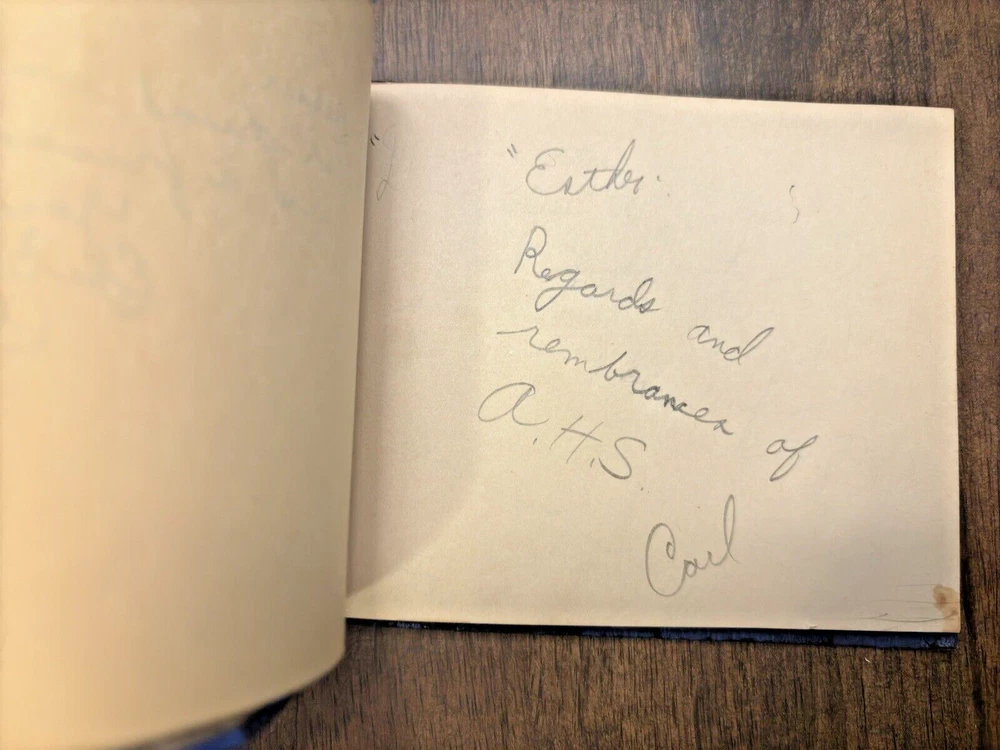 "Esther.
Regards and
rembrances of
A.H.S.
Carl